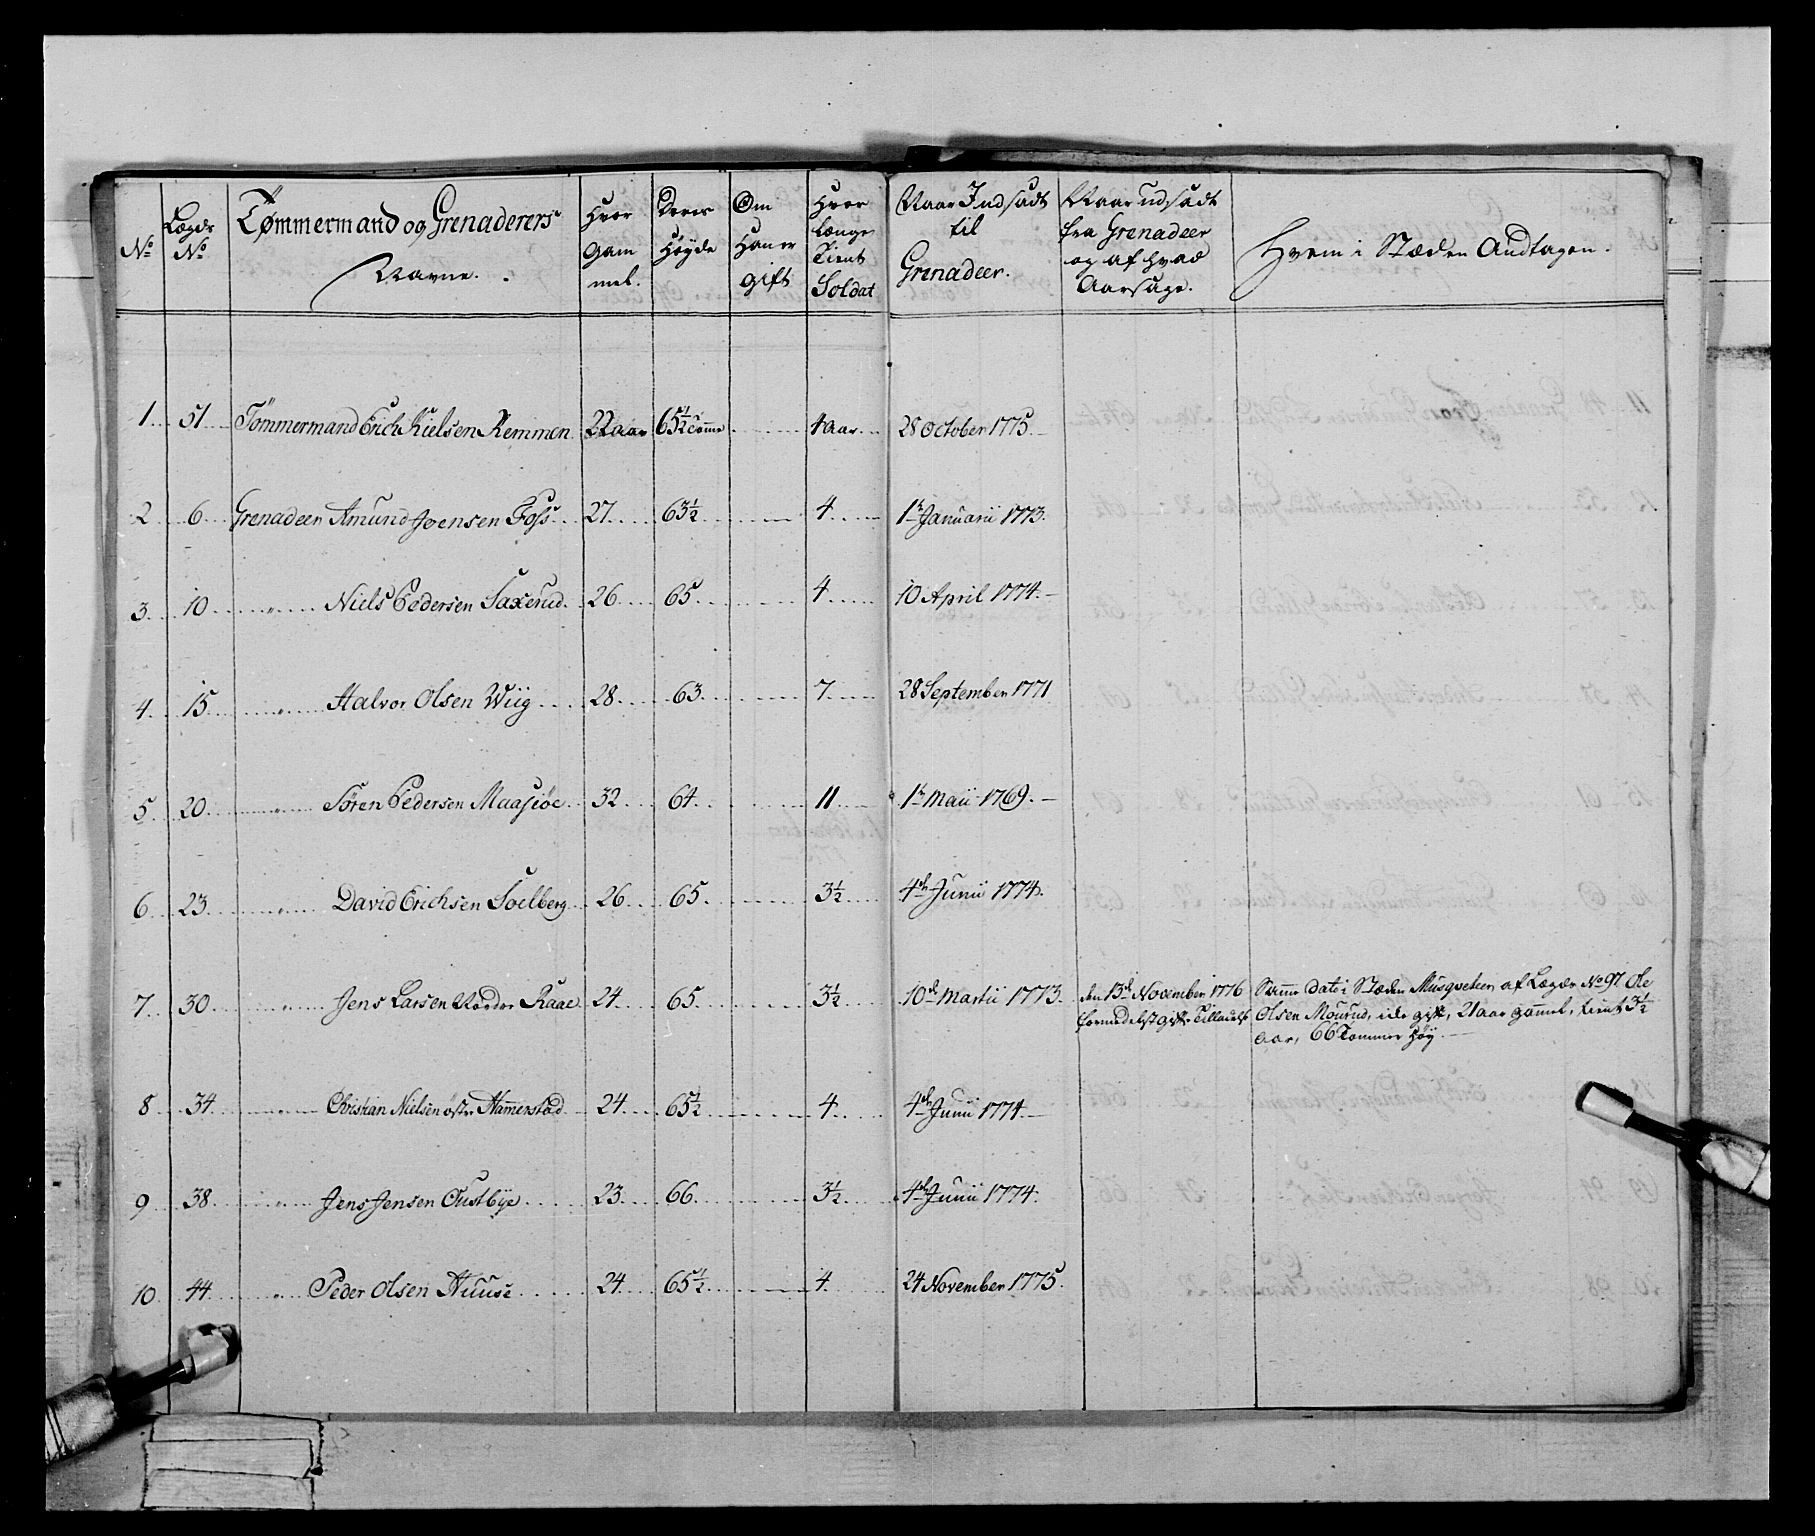 No
Lægds No
Tømmermand og Grenaderers Navne.
Hvor Gammel.
Deres Høyde
Om Han er gift
Hvor længe Tient Soldat
Naar Indsadt til Grenadeer.
Naar udsadt fra Grenadeer og af hvad Aarsage.
Hvem i Stæden Andtagen.
1 51 Tömmermand Erich Nielsen Remmen 22 aar 65½ Tomme 4 aar 28 October 1775
2 6 Grenadeer Amund Joensen Foss 27 63½ 4 1te Januarii 1773.
3 10 " Niels Pedersen Saxerud 26 65 4 10 April 1774.
4 15 " Halvor Olsen Wiig 28 63 7 28 September 1771
5 20 " Søren Pedersen Maasiöe 32 64 11 1te Maii 1769.
6 23 " David Erichsen Soelberg 26 65 3½ 4de Junii 1774.
7 30 " Jens Larsen Nordre Raae 24 65 3½ 10de Martii 1773. den 13de November 1776 Samme dato i Stæden Musqveteer af Lægds No 97 Ole
formedelst gifte Tilladelse Olsen Mourud, icke gift, 21 aar gammel, tient 3½
aar, 66 Tommer høy.
8 34 " Christian Nielsen östre Hamerstad 24 65½ 4 4de Junii 1774.
9 38 " Jens Jensen Tustbye 23 66 3½ 4de Junii 1774.
10 44 " Peder Olsen Huuse 24 65½ 4 24 November 1775.